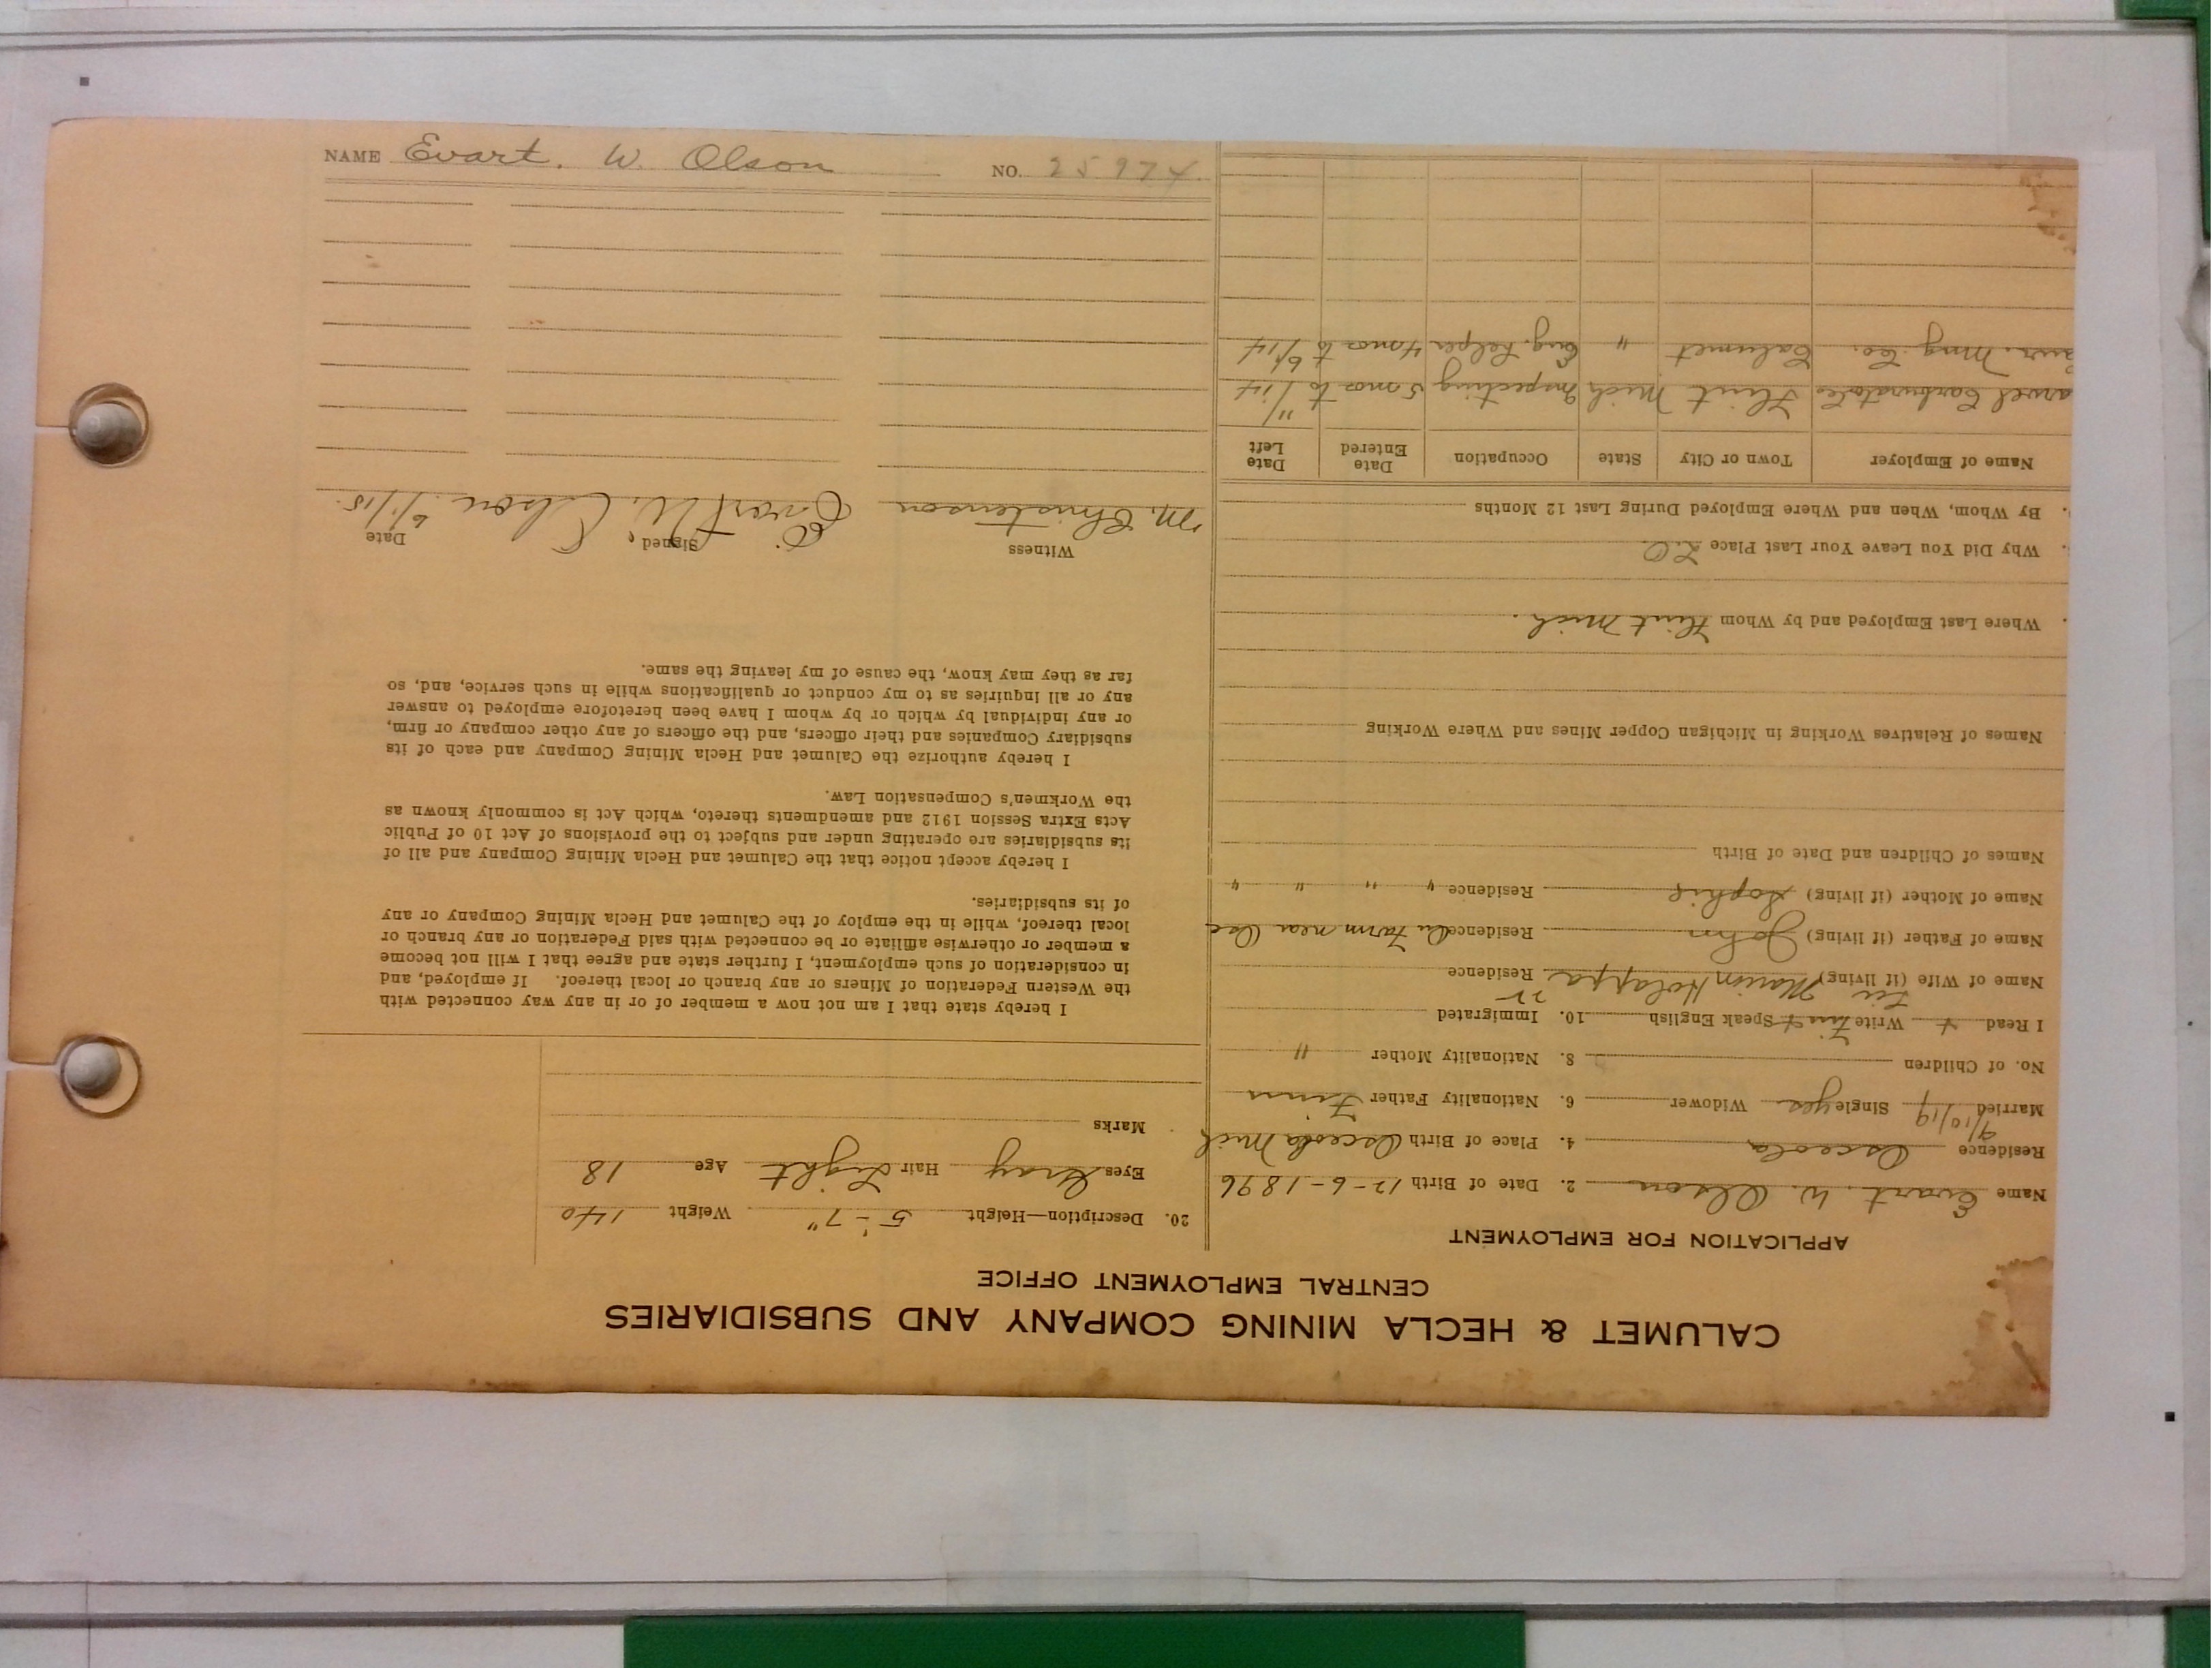 CALUMET & HECLA MINING COMPANY AND SUBSIDIARIES
CENTRAL EMPLOYMENT OFFICE
APPLICATION FOR EMPLOYMENT
Name Evart. W. Olson 2. Date of Birth 12-6-1896
Residence Osceola 4. Place of Birth Osceola Mich
9/10/19
Married Single yes Widower 6. Nationality Father Finn
No. of Children 8. Nationality Mother "
I Read + Write Finn + Speak English 10. Immigrated
Name of Wife (if living) Marion Holappa Residence
Name of Father (if living) John Residence On Farm near Osc
Name of Mother (if living) Sophie Residence " " " "
Names of Children and Date of Birth
Names of Relatives Working in Michigan Copper Mines and Where Working
Where Last Employed and by Whom Flint Mich.
Why Did You Leave Your Last Place L.O.
By Whom, When and Where Employed During Last 12 Months
Name of Employer Town or City State Occupation Date Entered Date Left
arvel Carburator Flint Mich Inspecting 5 mos to 11/14
Mng. Co. Calumet " Eng. helper 4 mos to 6/14
20. Description—Height 5'-7" Weight 140
Eyes Gray Hair Light Age 18
Marks
I hereby state that I am not now a member of or in any way connected with
the Western Federation of Miners or any branch or local thereof. If employed, and
in consideration of such employment, I further state and agree that I will not become
a member or otherwise affiliate or be connected with said Federation or any branch or
local thereof, while in the employ of the Calumet and Hecla Mining Company or any
of its subsidiaries.
I hereby accept notice that the Calumet and Hecla Mining Company and all of
its subsidiaries are operating under and subject to the provisions of Act 10 of Public
Acts Extra Session 1912 and amendments thereto, which Act is commonly known as
the Workmen's Compensation Law.
I hereby authorize the Calumet and Hecla Mining Company and each of its
subsidiary Companies and their officers, and the officers of any other company or firm,
or any individual by which or by whom I have been heretofore employed to answer
any or all inquiries as to my conduct or qualifications while in such service, and, so
far as they may know, the cause of my leaving the same.
Witness Signed Date
M. Christenson Evart W. Olson 6/1/15.
NAME Evart. W. Olson NO. 25974